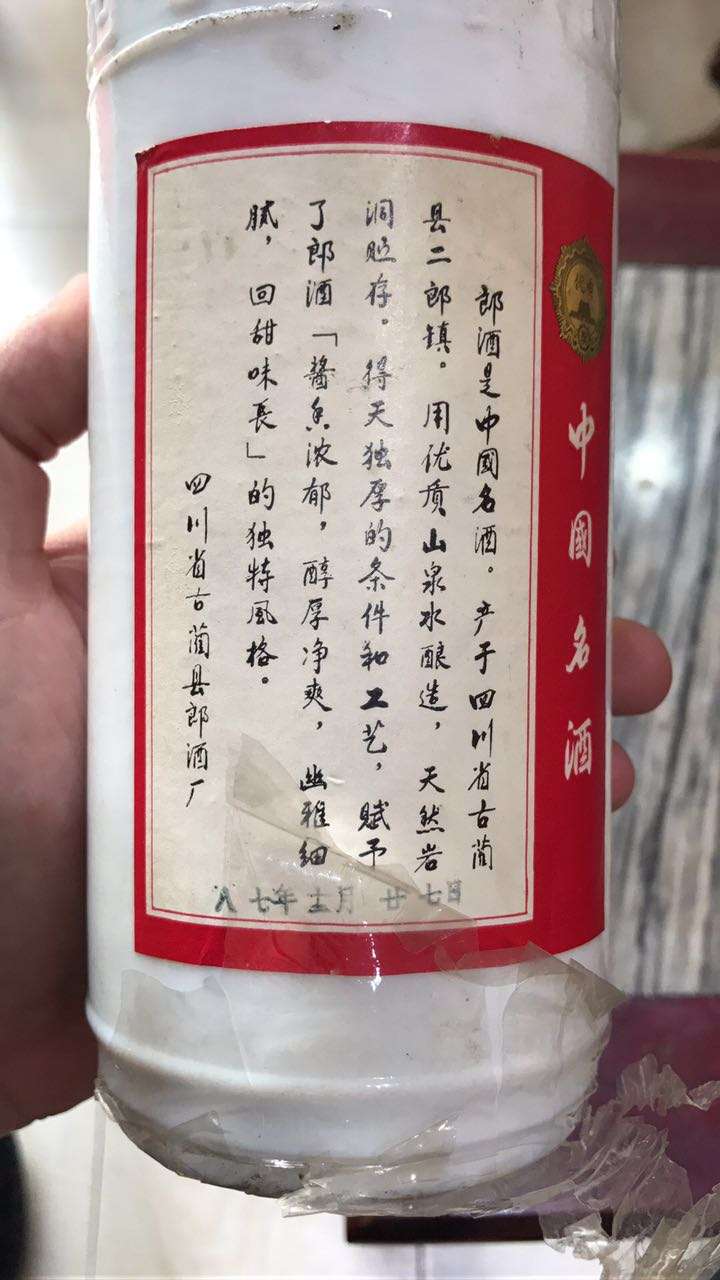 中國名酒
郎酒是中國名酒。产于四川省古蔺
县二郎镇。用优质山泉水酿造，天然岩
洞贮存。得天独厚的条件和工艺，赋予
了郎酒「醬香浓郁，醇厚净爽，幽雅细
腻，回甜味長」的独特風格。
四川省古蔺县郎酒厂
八七年十一月廿七日